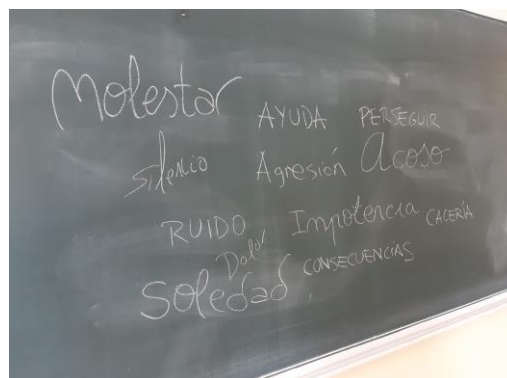 Molestar AYUDA PERSEGUIR
silencio Agresión Acoso
RUIDO Impotencia CACERÍA
Dolor CONSECUENCIAS
Soledad